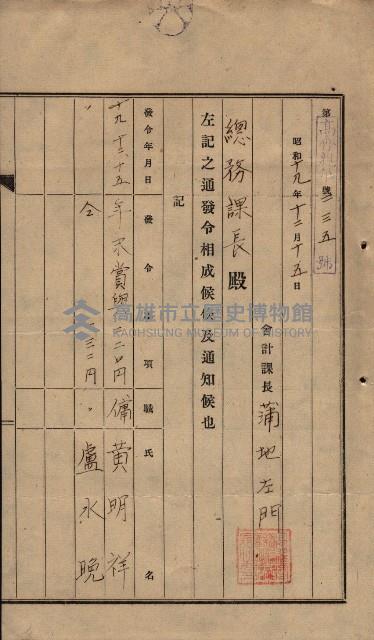 第 號ノ三三五 號
昭和十九年十二月十五日
總務課長 殿
會計課長 蒲地左門
左記之通發令相成候條及通知候也
記
發令年月日 發令事項 職 氏名
十九、十二、十五 年末賞與 三二〇円 傭 黃明祥
〃 仝 三二〇円 〃 盧永晚
高雄市立歷史博物館
KAOHSIUNG MUSEUM OF HISTORY